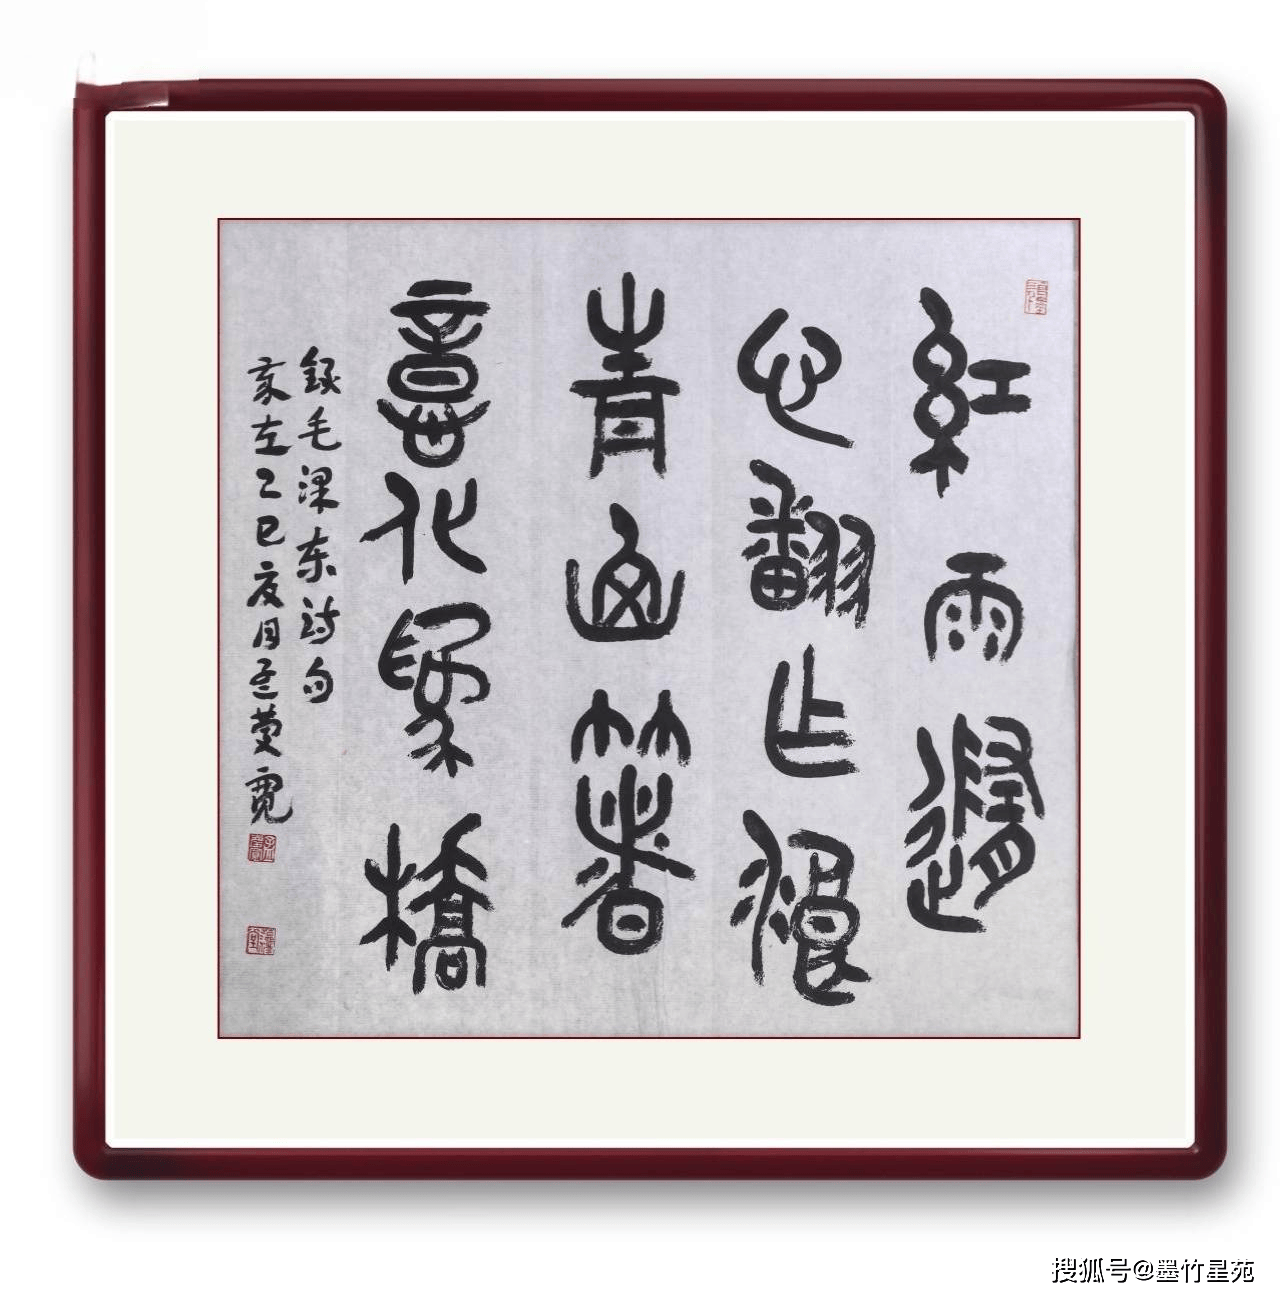 紅雨隨
心翻乍浪
青山箸
意化為橋
録毛澤东詩句
歲在乙巳夏月孟
搜狐号@墨竹星苑